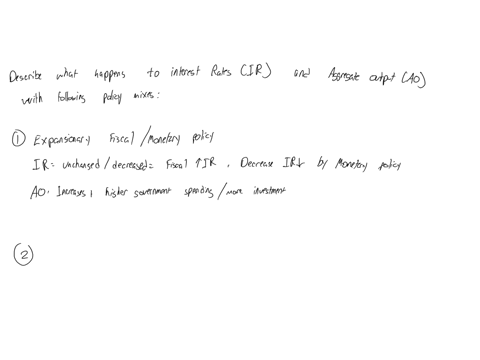 Describe what happens to interest Rates (IR) and Aggregate output (AO)
with following policy mixes:
① Expansionary Fiscal / Monetary policy
IR = unchanged / decreased = Fiscal ↑ IR , Decrease IR↓ by Monetary policy
AO. Increases, higher government spending / more investment
②